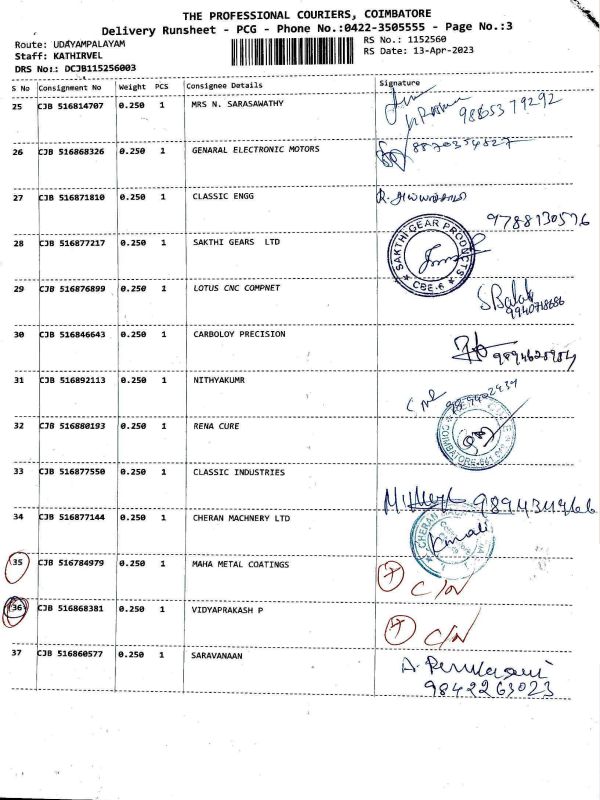 THE PROFESSIONAL COURIERS, COIMBATORE
Delivery Runsheet - PCG - Phone No.:0422-3505555 - Page No.:3
Route: UDAYAMPALAYAM
RS No.: 1152560
Staff: KATHIRVEL
RS Date: 13-Apr-2023
DRS No.: DCJB115256003
S No Consignment No Weight PCS Consignee Details Signature
25 CJB 516814707 0.250 1 MRS N. SARASAWATHY
9865379292
26 CJB 516868326 0.250 1 GENARAL ELECTRONIC MOTORS 8870354827
27 CJB 516871810 0.250 1 CLASSIC ENGG
9788130576
28 CJB 516877217 0.250 1 SAKTHI GEARS LTD
SAKTHI GEAR PRODUCTS
CBE-6
29 CJB 516876899 0.250 1 LOTUS CNC COMPNET
9940718686
30 CJB 516846643 0.250 1 CARBOLOY PRECISION
9894628984
31 CJB 516892113 0.250 1 NITHYAKUMR
32 CJB 516880193 0.250 1 RENA CURE
33 CJB 516877550 0.250 1 CLASSIC INDUSTRIES
9894311966
34 CJB 516877144 0.250 1 CHERAN MACHNERY LTD
CHERAN
35 CJB 516784979 0.250 1 MAHA METAL COATINGS
C/N
36 CJB 516868381 0.250 1 VIDYAPRAKASH P
C/N
37 CJB 516860577 0.250 1 SARAVANAAN
9842263023